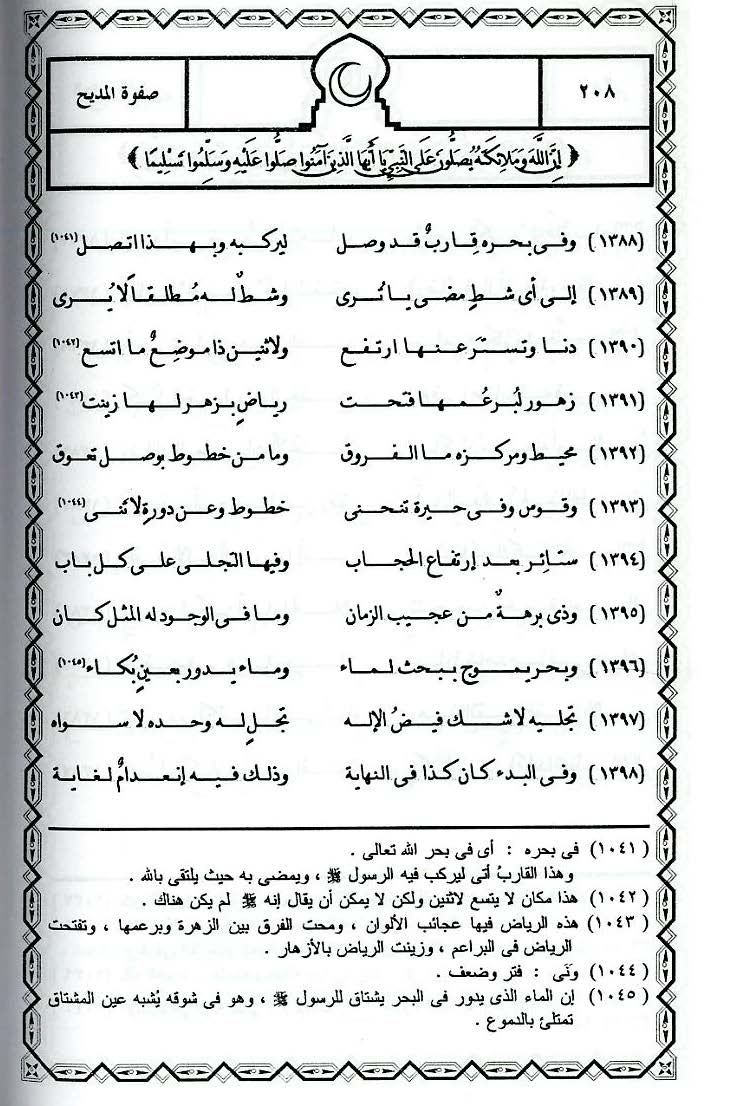 ٢٠٨
صفوة المديح
﴿ إِنَّ اللَّهَ وَمَلَائِكَتَهُ يُصَلُّونَ عَلَى النَّبِيِّ يَا أَيُّهَا الَّذِينَ آمَنُوا صَلُّوا عَلَيْهِ وَسَلِّمُوا تَسْلِيمًا ﴾
(١٣٨٨) وفى بحره قِاربٌ قد وصل ليركبه وبهذا اتصل (١٠٤١)
(١٣٨٩) إلى أى شطٍ مضى يا تُرى وشطٌ له مُطلقاً لا يُرى
(١٣٩٠) دنا وتستر عنها ارتفع ولاثنين ذا موضعٌ ما اتسع (١٠٤٢)
(١٣٩١) زهور لبُرعُمها فتحت رياضٍ بزهر لها زينت (١٠٤٣)
(١٣٩٢) محيط ومركزه ما الفروق وما من خطوط بوصل تعوق
(١٣٩٣) وقوس وفى حيرة تنحنى خطوط وعن دورةٍ لا تنى (١٠٤٤)
(١٣٩٤) ستائر بعد إرتفاع الحجاب وفيها التجلى على كل باب
(١٣٩٥) وذى برهةٌ من عجيب الزمان وما فى الوجود له المثل كان
(١٣٩٦) وبحر يموج يبحث لماء وماء يدور بعينٍ بُكاء (١٠٤٥)
(١٣٩٧) تجليه لا شك فيضُ الإله تجلٍ له وحده لا سواه
(١٣٩٨) وفى البدء كان كذا فى النهاية وذلك فيه إنعدامٌ لغاية
(١٠٤١) فى بحره : أى فى بحر الله تعالى .
وهذا القاربُ أتى ليركب فيه الرسول ﷺ ، ويمضى به حيث يلتقى بالله .
(١٠٤٢) هذا مكان لا يتسع لاثنين ولكن لا يمكن أن يقال إنه ﷺ لم يكن هناك .
(١٠٤٣) هذه الرياض فيها عجائب الألوان ، ومحت الفرق بين الزهرة وبرعمها ، وتفتحت
الرياض فى البراعم ، وزينت الرياض بالأزهار .
(١٠٤٤) ونَى : فتر وضعف .
(١٠٤٥) إن الماء الذى يدور فى البحر يشتاق للرسول ﷺ ، وهو فى شوقه يُشبه عين المشتاق
تمتلئ بالدموع .